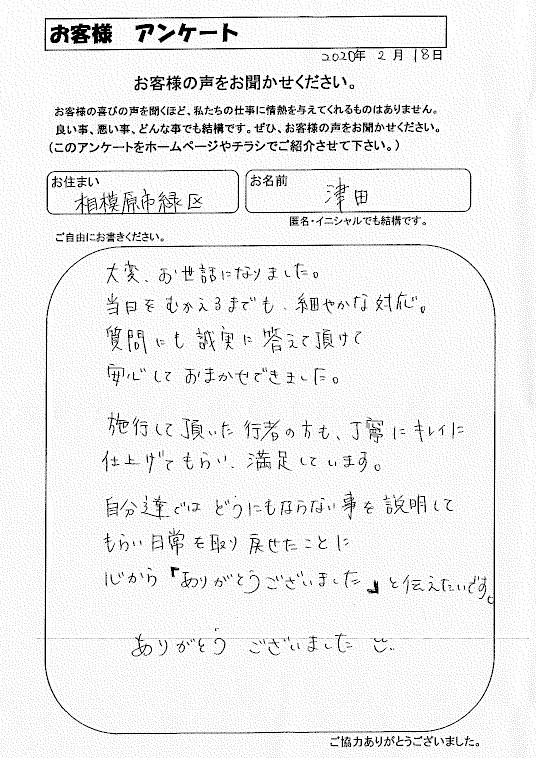 お客様 アンケート
2020年 2月 18日
お客様の声をお聞かせください。
お客様の喜びの声を聞くほど、私たちの仕事に情熱を与えてくれるものはありません。
良い事、悪い事、どんな事でも結構です。ぜひ、お客様の声をお聞かせください。
(このアンケートをホームページやチラシでご紹介させて下さい。)
お住まい
相模原市緑区
お名前
津田
匿名・イニシャルでも結構です。
ご自由にお書きください。
大変、お世話になりました。
当日をむかえるまでも、細やかな対応。
質問にも誠実に答えて頂けて
安心しておまかせできました。
施行して頂いた行者の方も、丁寧にキレイに
仕上げてもらい、満足しています。
自分達ではどうにもならない事を説明して
もらい日常を取り戻せたことに
心から『ありがとうございました』と伝えたいです。
ありがとう ございました
ご協力ありがとうございました。